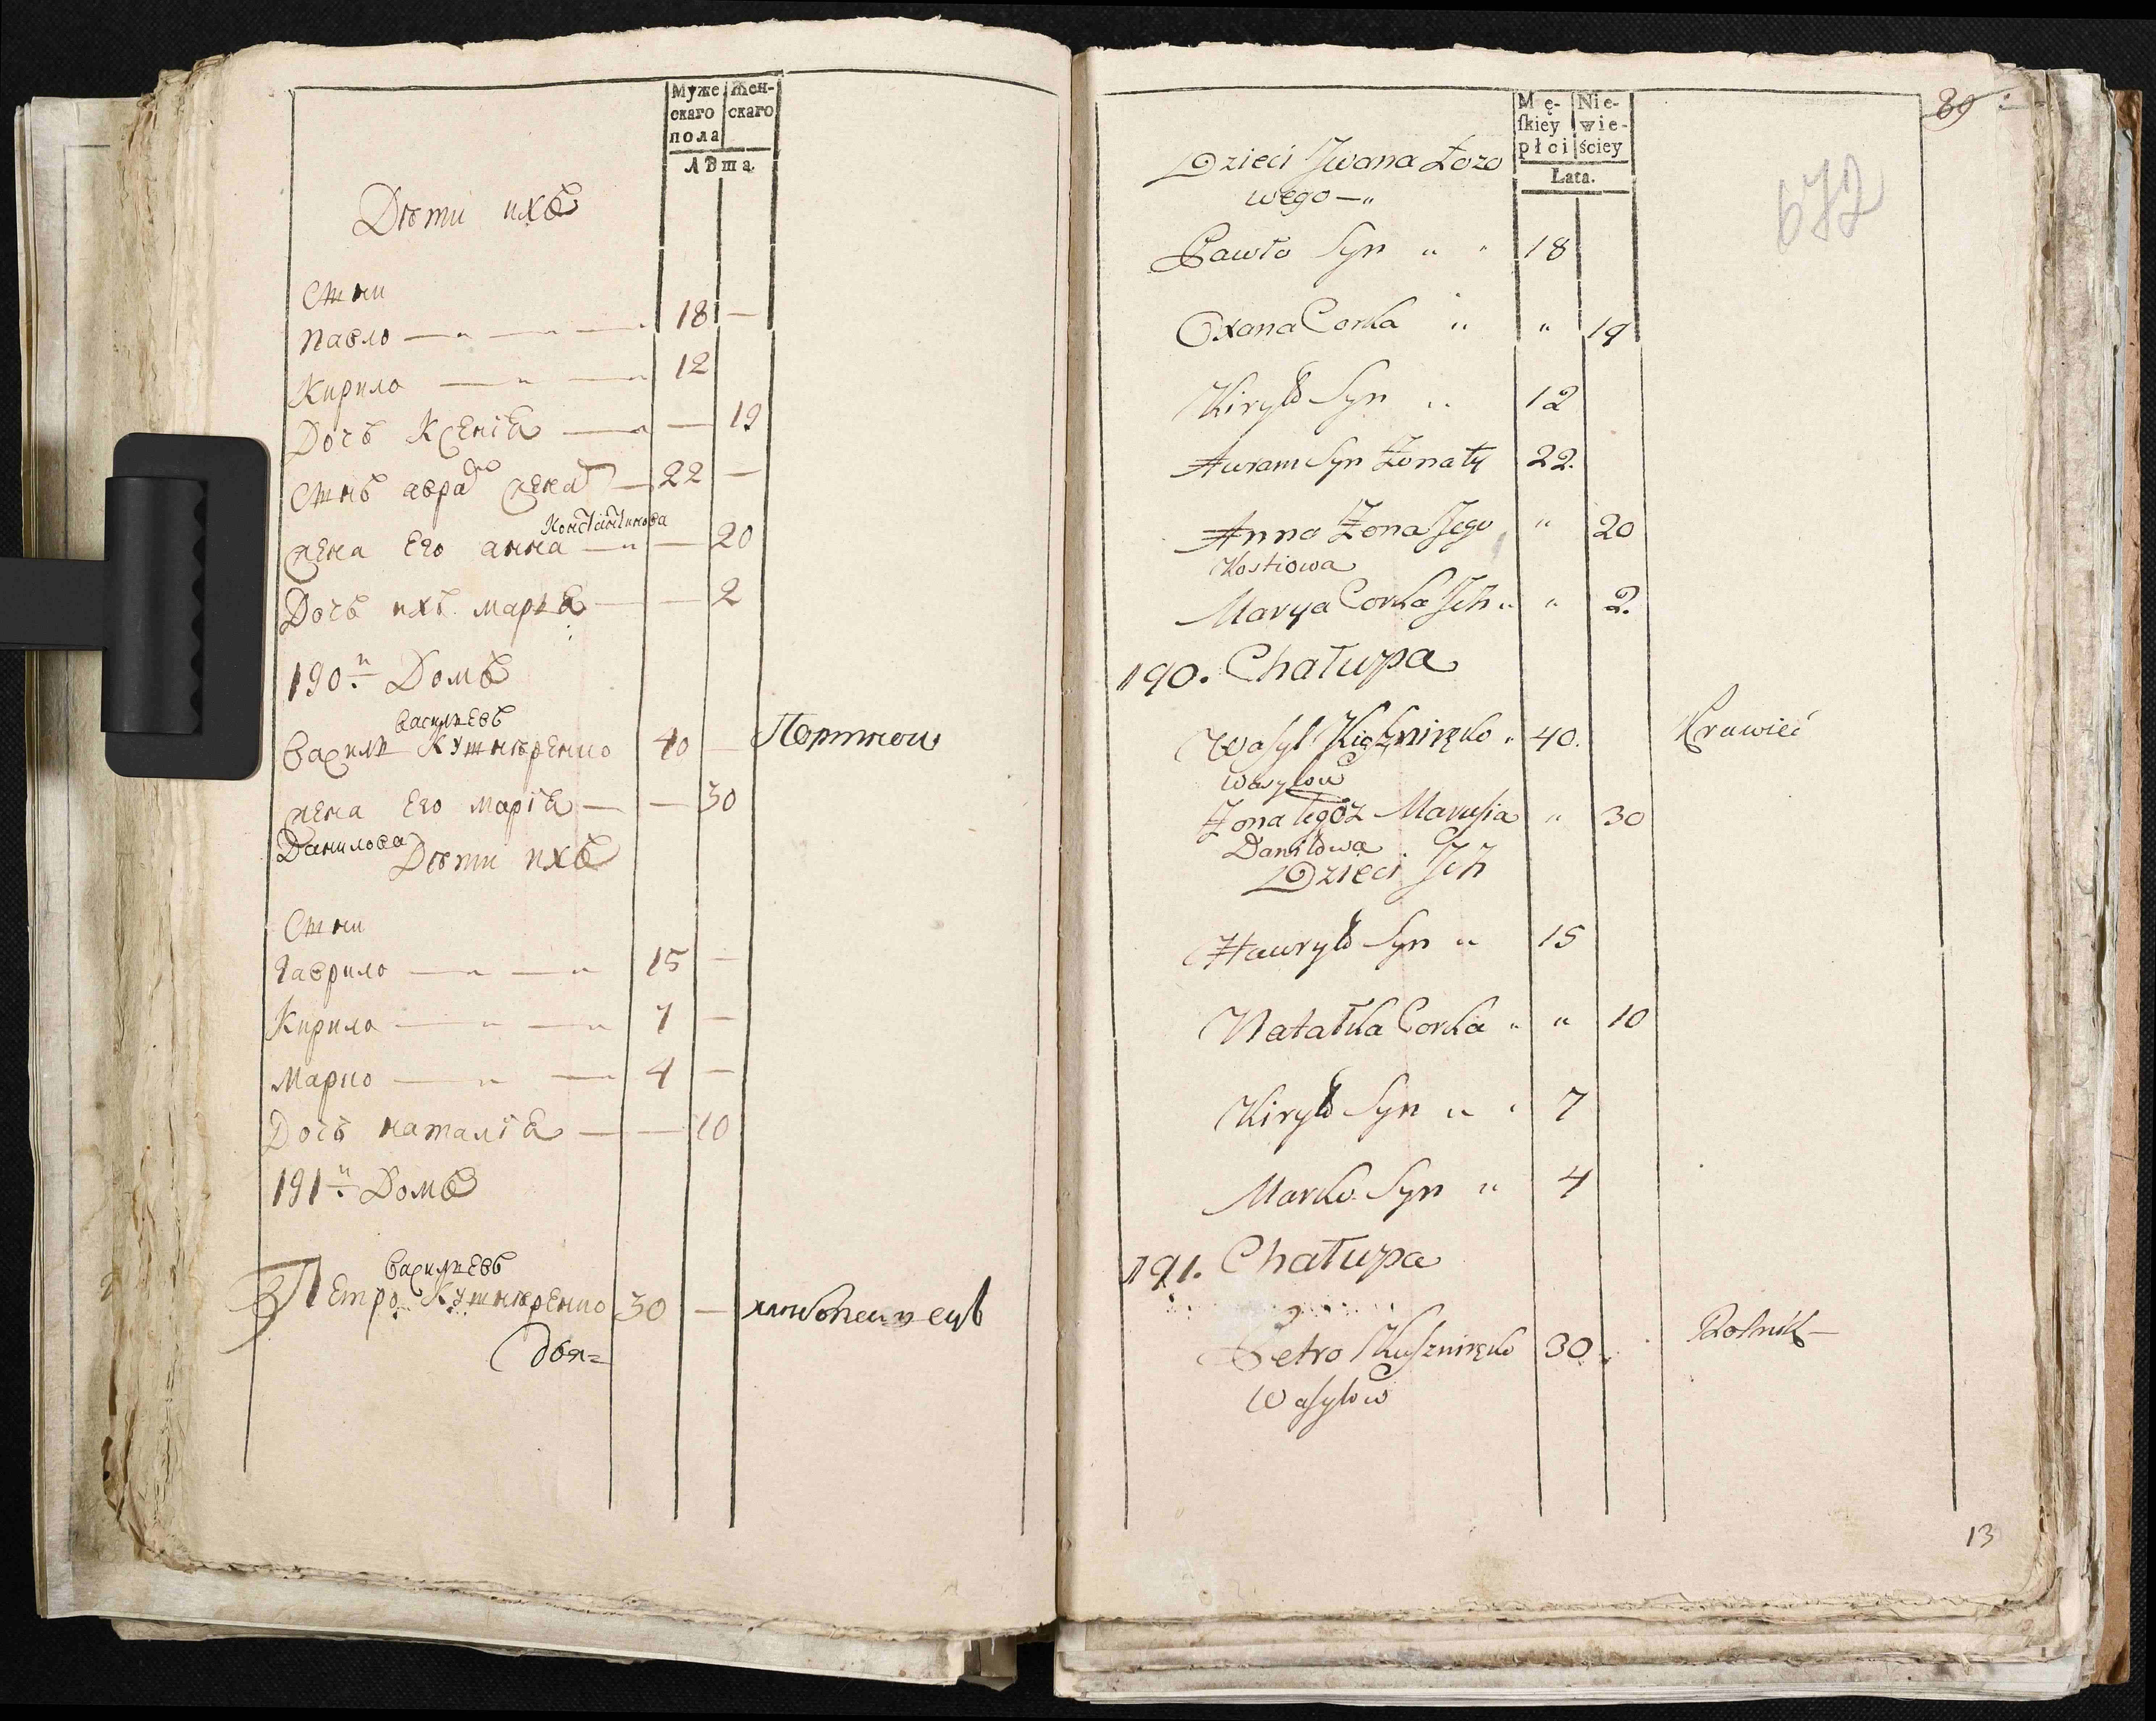 Муже
скаго
пола
Жен-
скаго
Лѣта.
Дѣти ихъ
Сыни
Павло — „ — „ — 18 —
Кирило — „ — „ 12
Дочъ Ксенія — „ — 19
Сынъ аврам женат — 22 —
Константинова
жена его анна — „ — 20
Дочъ ихъ марья — — 2
190й Домъ
Васильевъ
Василь Кушнѣренко 40 — Портной
жена Его Марія — — 30
Данилова
Дѣти ихъ
Сыни
Гаврило — „ — „ 15 —
Кирило — „ — „ 7 —
Марко — „ — 4 —
Дочъ наталія — — 10
191й Домъ
Васильевъ
Петро Кушнѣренко 30 — хлѣбопашецъ
Mę-
ſkiey
płci
Nie-
wie-
ściey
Lata.
89
672
Dzieci Jwana Łozo
wego — „
Pawło Syn „ „ 18
Oxana Corka „ „ 19
Kiryło Syn „ 12
Awram Syn Żonaty 22.
Anna Żona Jego „ 20
Kostiowa
Marya Corka Jch „ „ 2.
190. Chałupa
Wasyl Kuśzniręko „ 40. Krawiec
Wasylow
Żona tegoż Marusia „ 30
Daniłowa
Dzieci Jch
Hawryło Syn „ 15
Natałka Corka „ „ 10
Kiryło Syn „ „ 7
Marko Syn „ 4
191. Chałupa
Petro Kuszniręko 30 „ Rolnik —
Wasylow
13